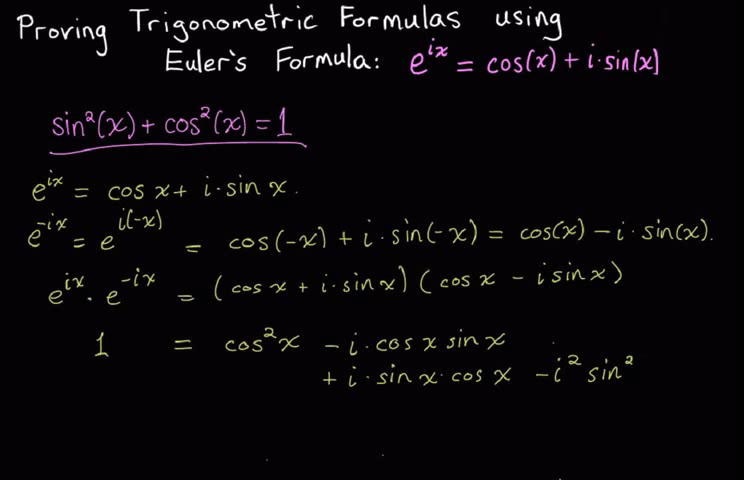 Proving Trigonometric Formulas using
Euler's Formula: e^{ix} = cos(x) + i·sin(x)
sin²(x) + cos²(x) = 1
e^{ix} = cos x + i·sin x.
e^{-ix} = e^{i(-x)} = cos(-x) + i·sin(-x) = cos(x) - i·sin(x).
e^{ix} · e^{-ix} = (cos x + i·sin x)(cos x - i sin x)
1 = cos²x - i·cos x sin x
+ i·sin x·cos x - i² sin²